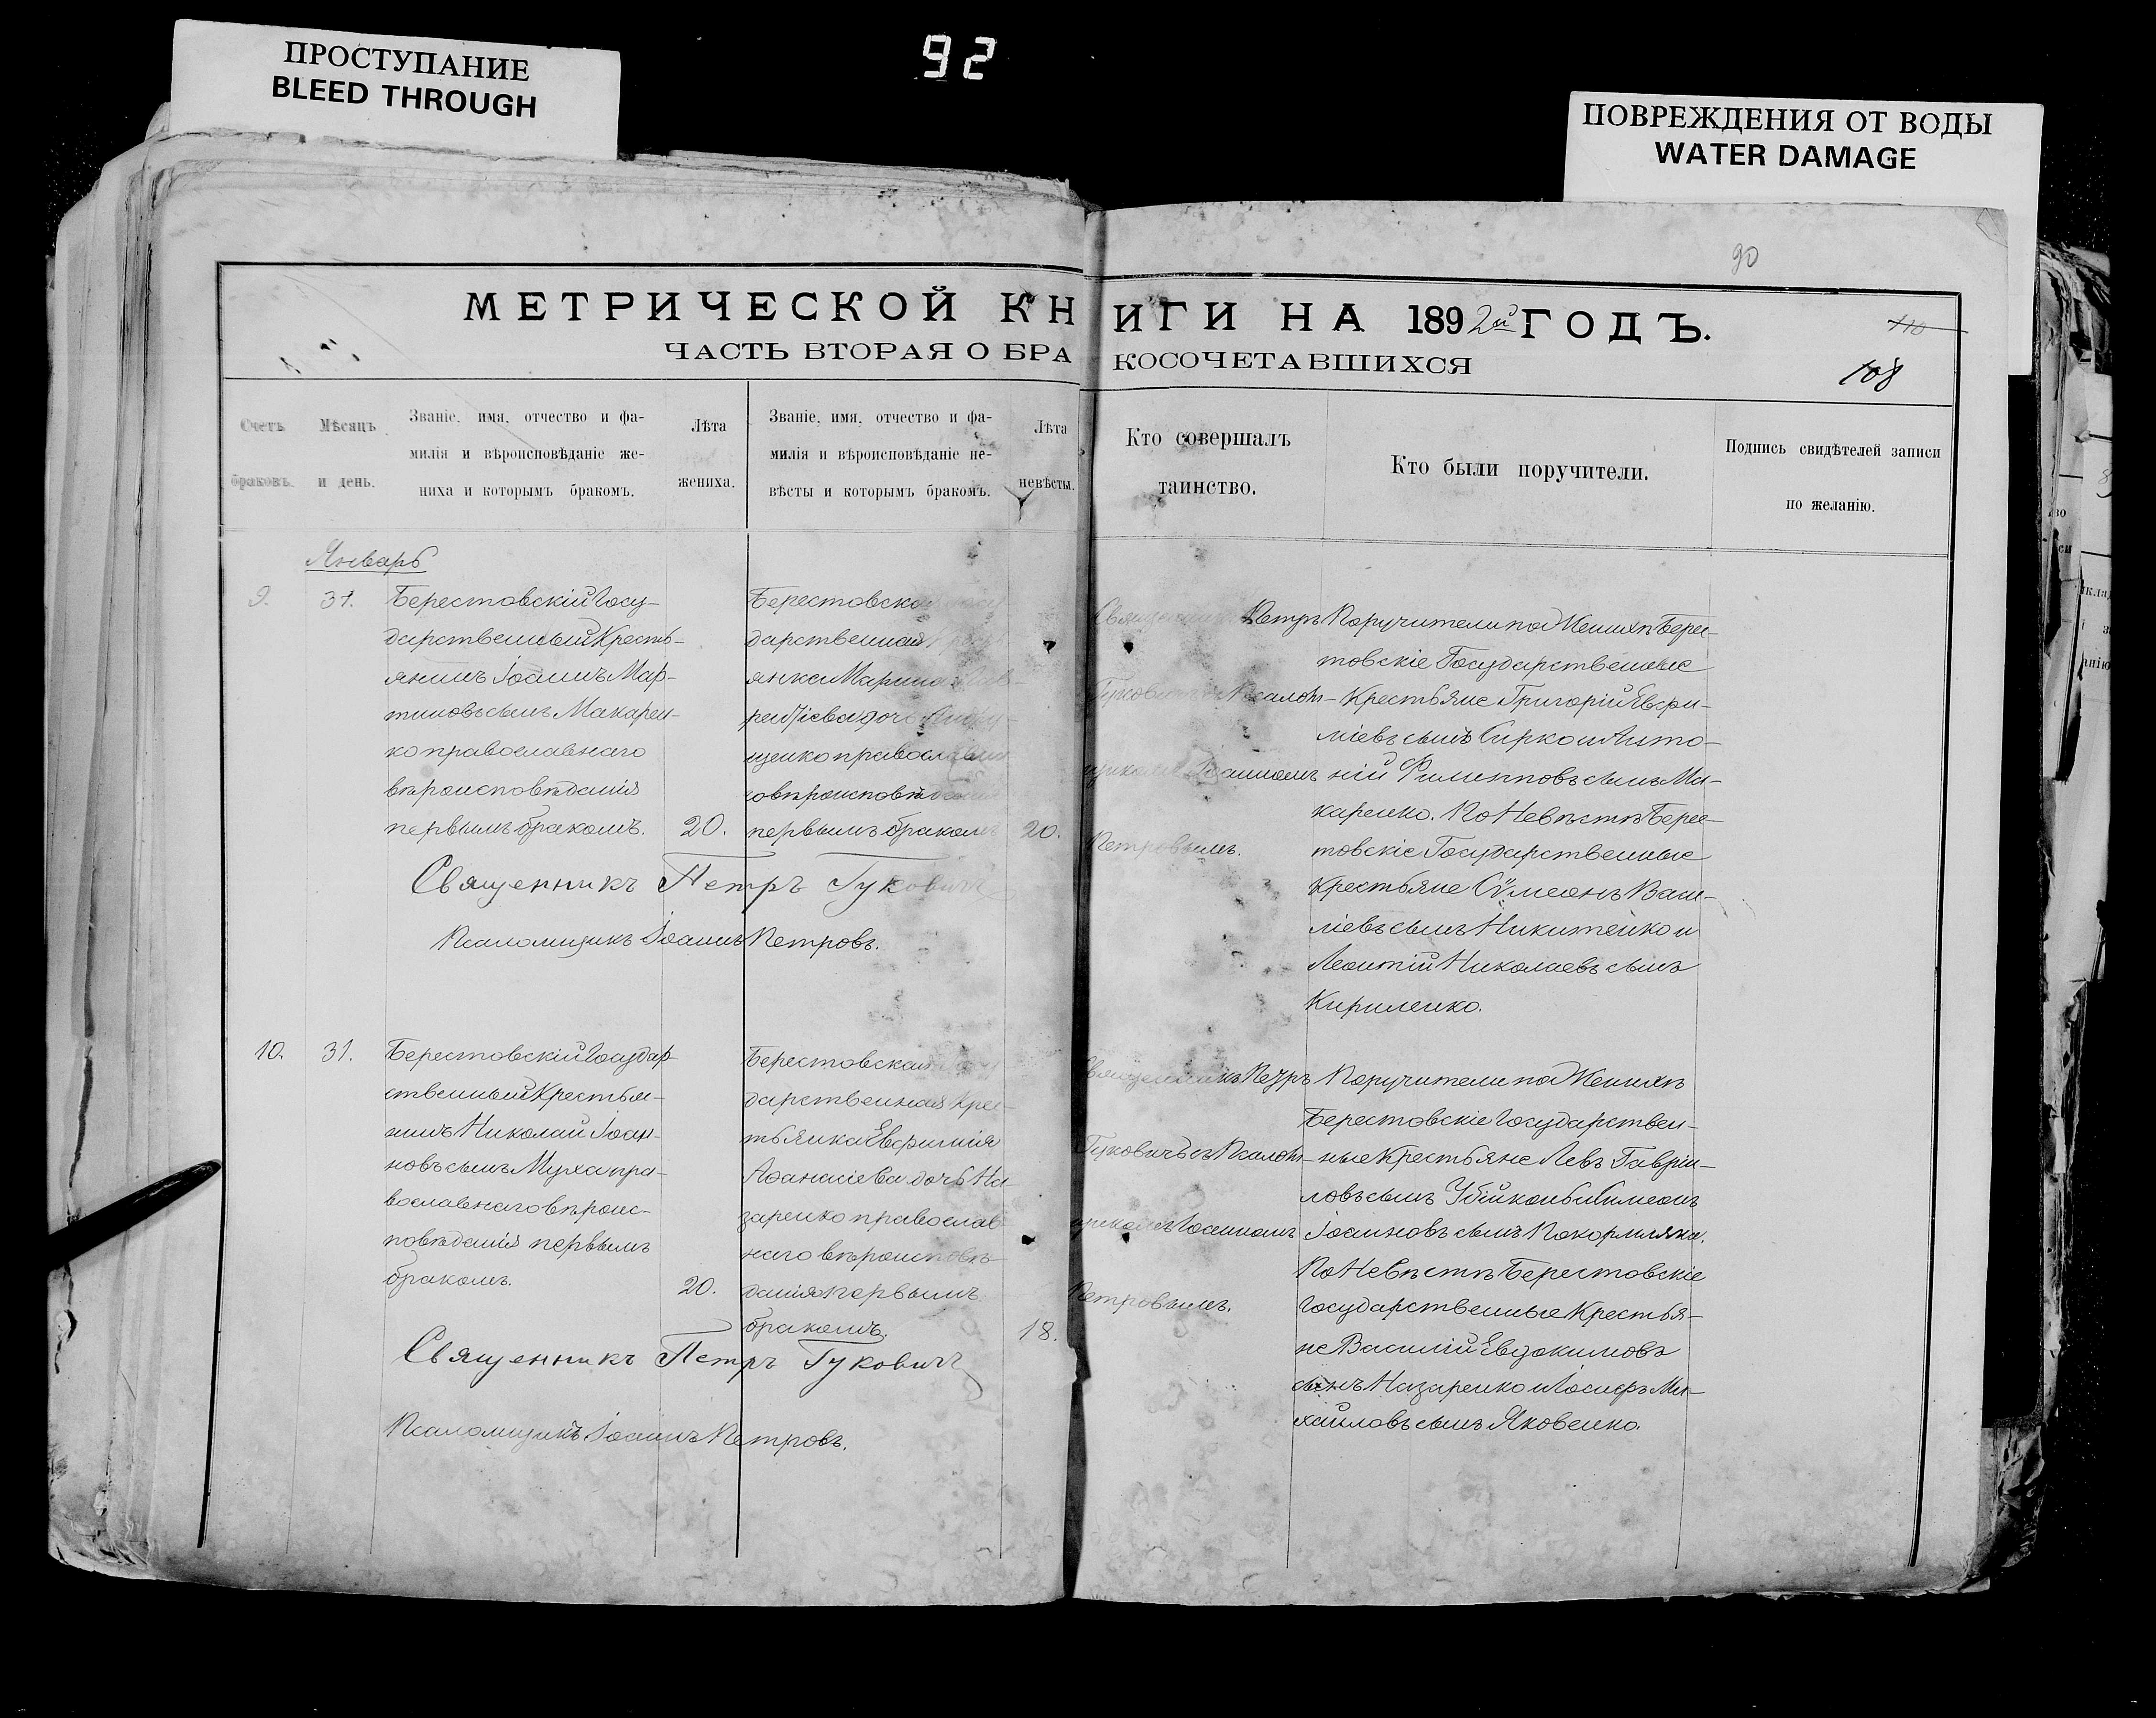 ПРОСТУПАНИЕ
BLEED THROUGH
92
ПОВРЕЖДЕНИЯ ОТ ВОДЫ
WATER DAMAGE
90
МЕТРИЧЕСКОЙ КНИГИ НА 1892й ГОДЪ.
110
ЧАСТЬ ВТОРАЯ О БРАКОСОЧЕТАВШИХСЯ
108
Счетъ
браковъ.
Мѣсяцъ
и день.
Званіе, имя, отчество и фа-
милія и вѣроисповѣданіе же-
ниха и которымъ бракомъ.
Лѣта
жениха.
Званіе, имя, отчество и фа-
милія и вѣроисповѣданіе не-
вѣсты и которымъ бракомъ.
Лѣта
невѣсты.
Кто совершалъ
таинство.
Кто были поручители.
Подпись свидѣтелей записи
по желанію.
Январь
9.
31.
Берестовскій Госу-
дарственный Кресть-
янинъ Іоаннъ Мар-
тиновъ сынъ Макарен-
ко православнаго
вѣроисповѣданія
первымъ бракомъ.
20.
Берестовская
дарственная
янка Марина
дочь
щенко православна
го вѣроисповѣданія
первымъ бракомъ
20.
Священникъ Петръ
Гуковичъ Псалом-
щикомъ Іоанномъ
Петровымъ.
Поручители по Женихѣ Берес-
товскіе Государственные
Крестьяне Григорій Евфи-
міевъ сынъ Сирко и Анто-
ній Филипповъ сынъ Ма-
каренко. По Невѣстѣ Берес-
товскіе Государственные
Крестьяне Сѵмеонъ Васи-
ліевъ сынъ Никитенко и
Леонтій Николаевъ сынъ
Кириленко.
Священникъ Петръ Гуковичъ
Псаломщикъ Іоаннъ Петровъ.
10.
31.
Берестовскій Государ-
ственный Крестья-
нинъ Николай Іоан-
новъ сынъ Муха пра-
вославнаго вѣроис-
повѣданія первымъ
бракомъ.
20.
Берестовская Госу-
дарственная Крес-
тьянка Евфимія
Аѳанасіева дочь На-
заренко православ-
наго вѣроисповѣ-
данія первымъ
бракомъ.
18.
Священникъ Петръ
Гуковичъ съ Псалом-
щикомъ Іоанномъ
Петровымъ.
Поручители по Женихѣ
Берестовскіе Государствен-
ные Крестьяне Левъ Гаврии-
ловъ сынъ Симеонъ
Іоанновъ сынъ Покормляка.
По Невѣстѣ Берестовскіе
Государственные Крестья-
не Василій Евдокимовъ
сынъ Назаренко и Іосифъ Ми-
хайловъ сынъ Яковенко.
Священникъ Петръ Гуковичъ
Псаломщикъ Іоаннъ Петровъ.